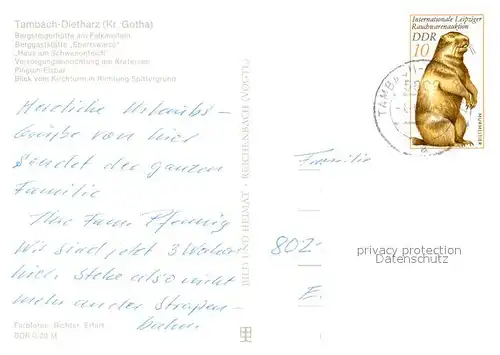 Tambach-Dietharz (Kr. Gotha)
Bergsteigerhütte am Falkenstein
Berggaststätte „Ebertswiese“
„Haus am Schwanenteich“
Versorgungseinrichtung am
Pinguin-Eisbar
Blick vom Kirchturm in Richtung Spittergrund
Herzliche Urlaubs-
Grüße von hier
Sendet der ganzen
Familie
Ihre Fam. Pfennig
Wir sind jetzt 3 Wochen
hier. Stehe also nicht
mehr an der Straßen-
bahn.
Farbfotos: Richter, Erfurt
DDR 0,20 M
BILD UND HEIMAT · REICHENBACH (VOGTL)
Internationale Leipziger
Rauchwarenauktion
DDR
10
MURMELTIER
TAMBACH-
a
Familie
802-
E.
privacy protection
Datenschutz